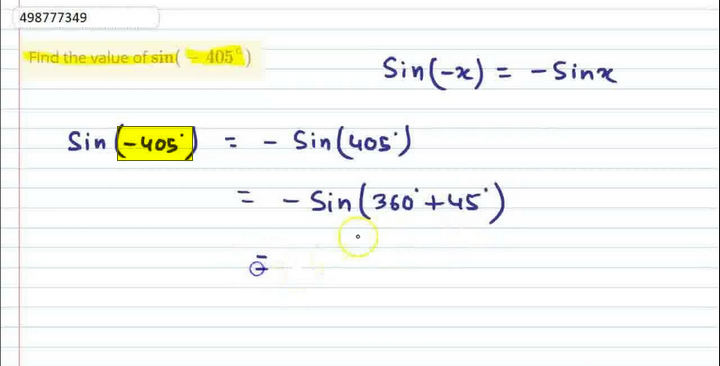 498777349
Find the value of sin( − 405°)
Sin(-x) = - Sinx
Sin (-405°) = - Sin(405°)
= - Sin(360°+45°)
=